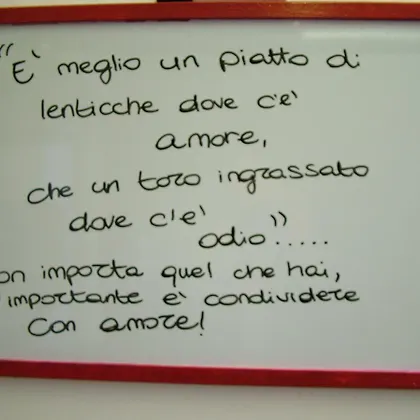 “E' meglio un piatto di
lenticche dove c'è
amore,
che un toro ingrassato
dove c'e'
odio”.....
on importa quel che hai,
importante e' condividere
con amore!